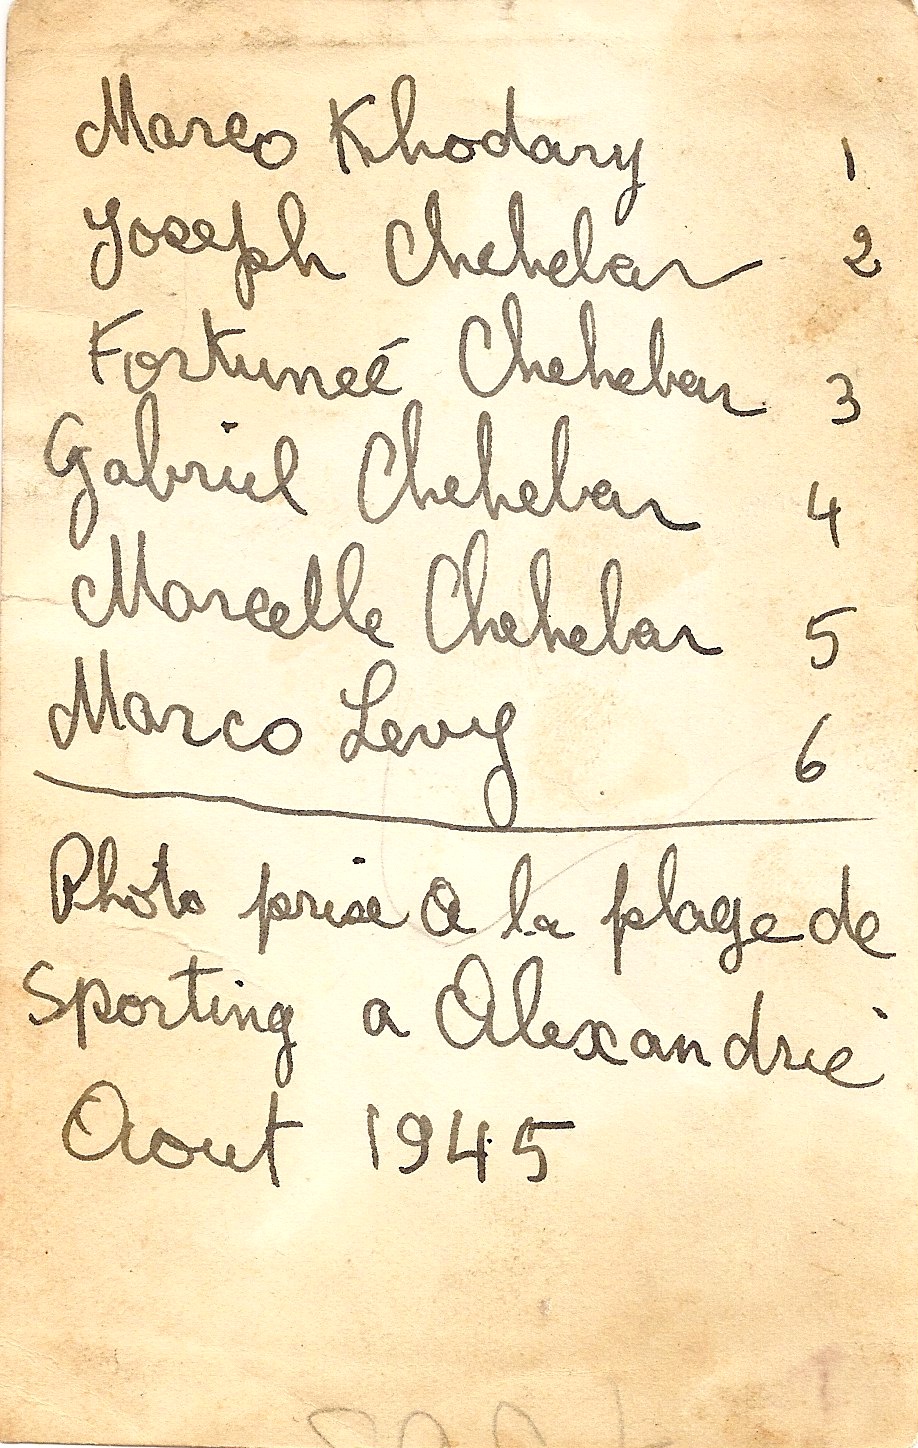 Marco Khodary 1
Joseph Chehebar 2
Fortuneé Chehebar 3
Gabriel Chehebar 4
Marcelle Chehebar 5
Marco Levy 6
Photo prise a la plage de
Sporting a Alexandrie
Aout 1945